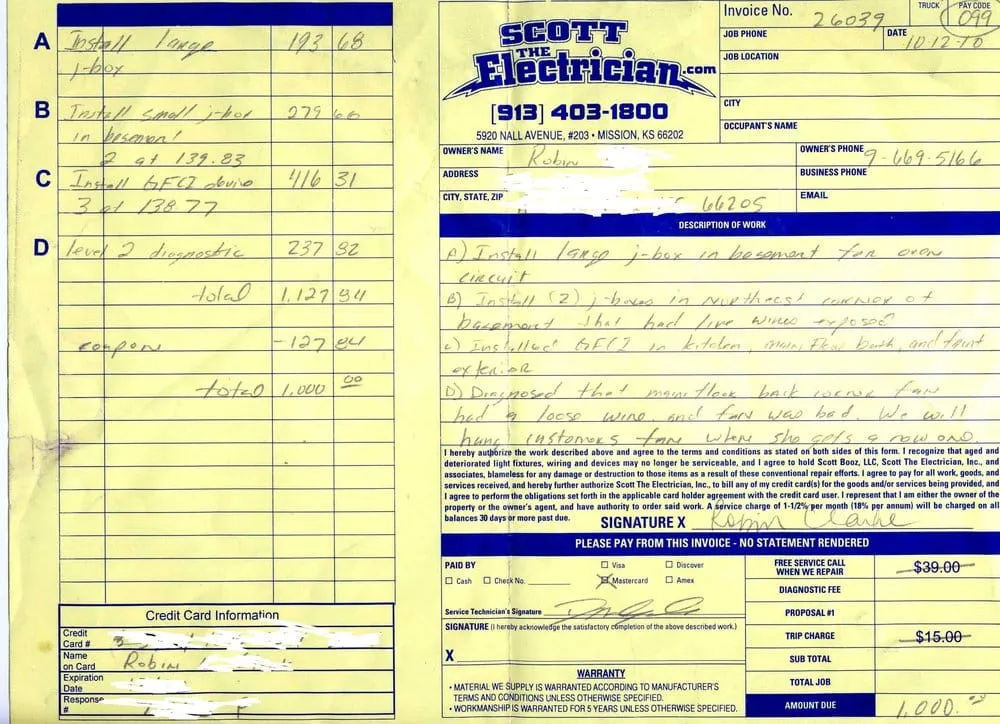 A Install large 193 68
j-box
B Install small j-box 279 66
in basement
2 at 139.83
C Install GFCI device 416 31
3 at 138.77
D level 2 diagnostic 237 92
total 1,127 94
coupon -127 94
total 1,000 00
Credit Card Information
Credit
Card #
Name
on Card Robin
Expiration
Date
Response
#
SCOTT
THE
Electrician.com
[913] 403-1800
5920 NALL AVENUE, #203 • MISSION, KS 66202
Invoice No. 26039
TRUCK
PAY CODE
099
JOB PHONE
DATE
10-12-10
JOB LOCATION
CITY
OCCUPANT'S NAME
OWNER'S NAME Robin
OWNER'S PHONE 9-669-5166
ADDRESS
BUSINESS PHONE
CITY, STATE, ZIP 66205
EMAIL
DESCRIPTION OF WORK
A) Install large j-box in basement for oven
circuit
B) Install (2) j-boxes in Northeast corner of
basement that had live wires exposed
C) Installed GFCI in kitchen, main floor bath, and front
exterior
D) Diagnosed that main floor back corner fan
had a loose wire, and fan was bad. We will
hang customers fan when she gets a new one.
I hereby authorize the work described above and agree to the terms and conditions as stated on both sides of this form. I recognize that aged and
deteriorated light fixtures, wiring and devices may no longer be serviceable, and I agree to hold Scott Booz, LLC, Scott The Electrician, Inc., and
associates, blameless for any damage or destruction to those items as a result of these conventional repair efforts. I agree to pay for all work, goods, and
services received, and hereby further authorize Scott The Electrician, Inc., to bill any of my credit card(s) for the goods and/or services being provided, and
I agree to perform the obligations set forth in the applicable card holder agreement with the credit card user. I represent that I am either the owner of the
property or the owner's agent, and have authority to order said work. A service charge of 1-1/2% per month (18% per annum) will be charged on all
balances 30 days or more past due.
SIGNATURE X Robin Clarke
PLEASE PAY FROM THIS INVOICE - NO STATEMENT RENDERED
PAID BY
Visa
Discover
Cash
Check No.
Mastercard
Amex
Service Technician's Signature
SIGNATURE (I hereby acknowledge the satisfactory completion of the above described work.)
X
WARRANTY
• MATERIAL WE SUPPLY IS WARRANTED ACCORDING TO MANUFACTURER'S
TERMS AND CONDITIONS UNLESS OTHERWISE SPECIFIED.
• WORKMANSHIP IS WARRANTED FOR 5 YEARS UNLESS OTHERWISE SPECIFIED.
FREE SERVICE CALL
WHEN WE REPAIR
$39.00
DIAGNOSTIC FEE
PROPOSAL #1
TRIP CHARGE
$15.00
SUB TOTAL
TOTAL JOB
AMOUNT DUE
1,000.